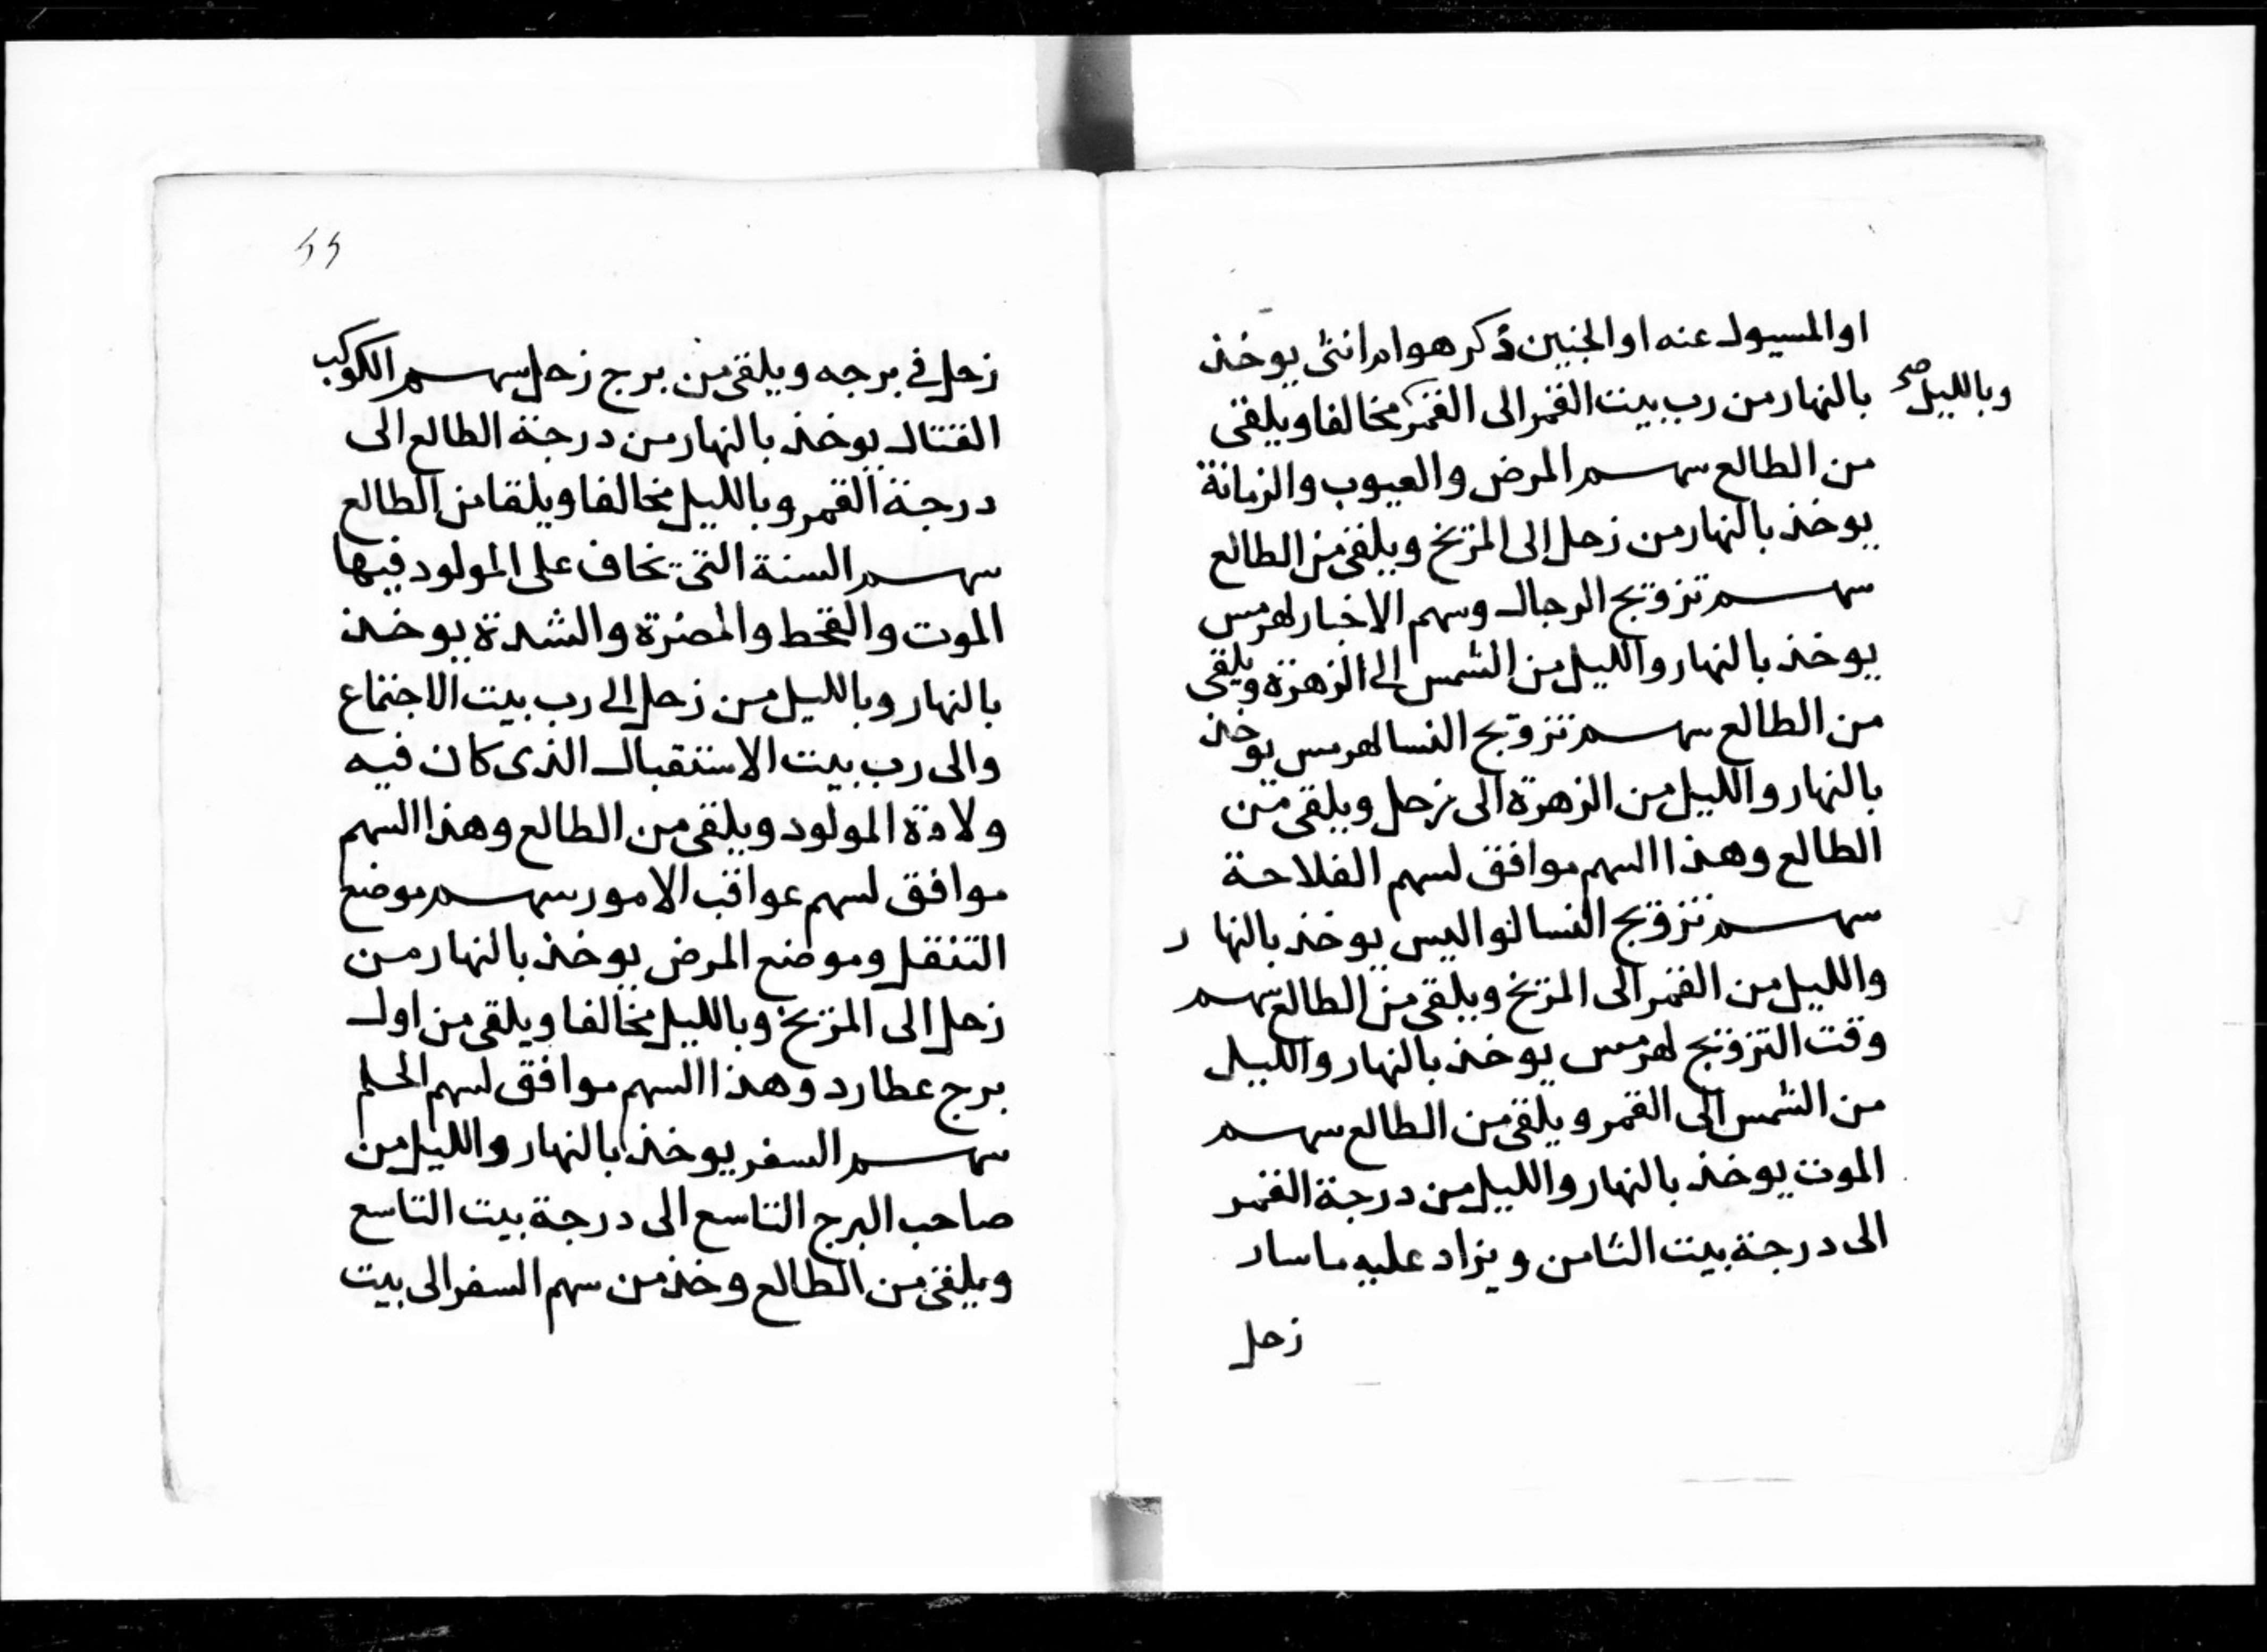 او المسيول عنه او الجنين ذكر هو ام انثى يوخذ
وبالليل صح
بالنهار من رب بيت القمر الى القمر مخالفا ويلقى
من الطالع سهم المرض والعيوب والزمانة
يوخذ بالنهار من زحل الى المريخ ويلقى من الطالع
سهم تزويج الرجال وسهم الاخبار لهرمس
يوخذ بالنهار والليل من الشمس الى الزهرة ويلقى
من الطالع سهم تزويج النسا لهرمس يوخذ
بالنهار والليل من الزهرة الى زحل ويلقى من
الطالع وهذا السهم موافق لسهم الفلاحة
سهم تزويج النسا لنواليس يوخذ بالنهار
والليل من القمر الى المريخ ويلقى من الطالع سهم
وقت التزويج لهرمس يوخذ بالنهار والليل
من الشمس الى القمر ويلقى من الطالع سهم
الموت يوخذ بالنهار والليل من درجة القمر
الى درجة بيت الثامن ويزاد عليه ما سار
زحل
٢٢
زحل في برجه ويلقى من برج زحل سهم الكوكب
القتال يوخذ بالنهار من درجة الطالع الى
درجة القمر وبالليل مخالفا ويلقا من الطالع
سهم السنة التي يخاف على المولود فيها
الموت والقحط والمضرة والشدة يوخذ
بالنهار وبالليل من زحل الى رب بيت الاجتماع
والى رب بيت الاستقبال الذى كان فيه
ولادة المولود ويلقى من الطالع وهذا السهم
موافق لسهم عواقب الامور سهم موضع
التنقل وموضع المرض يوخذ بالنهار من
زحل الى المريخ وبالليل مخالفا ويلقى من اول
برج عطارد وهذا السهم موافق لسهم الحلم
سهم السفر يوخذ بالنهار والليل من
صاحب البرج التاسع الى درجة بيت التاسع
ويلقى من الطالع وخذ من سهم السفر الى بيت